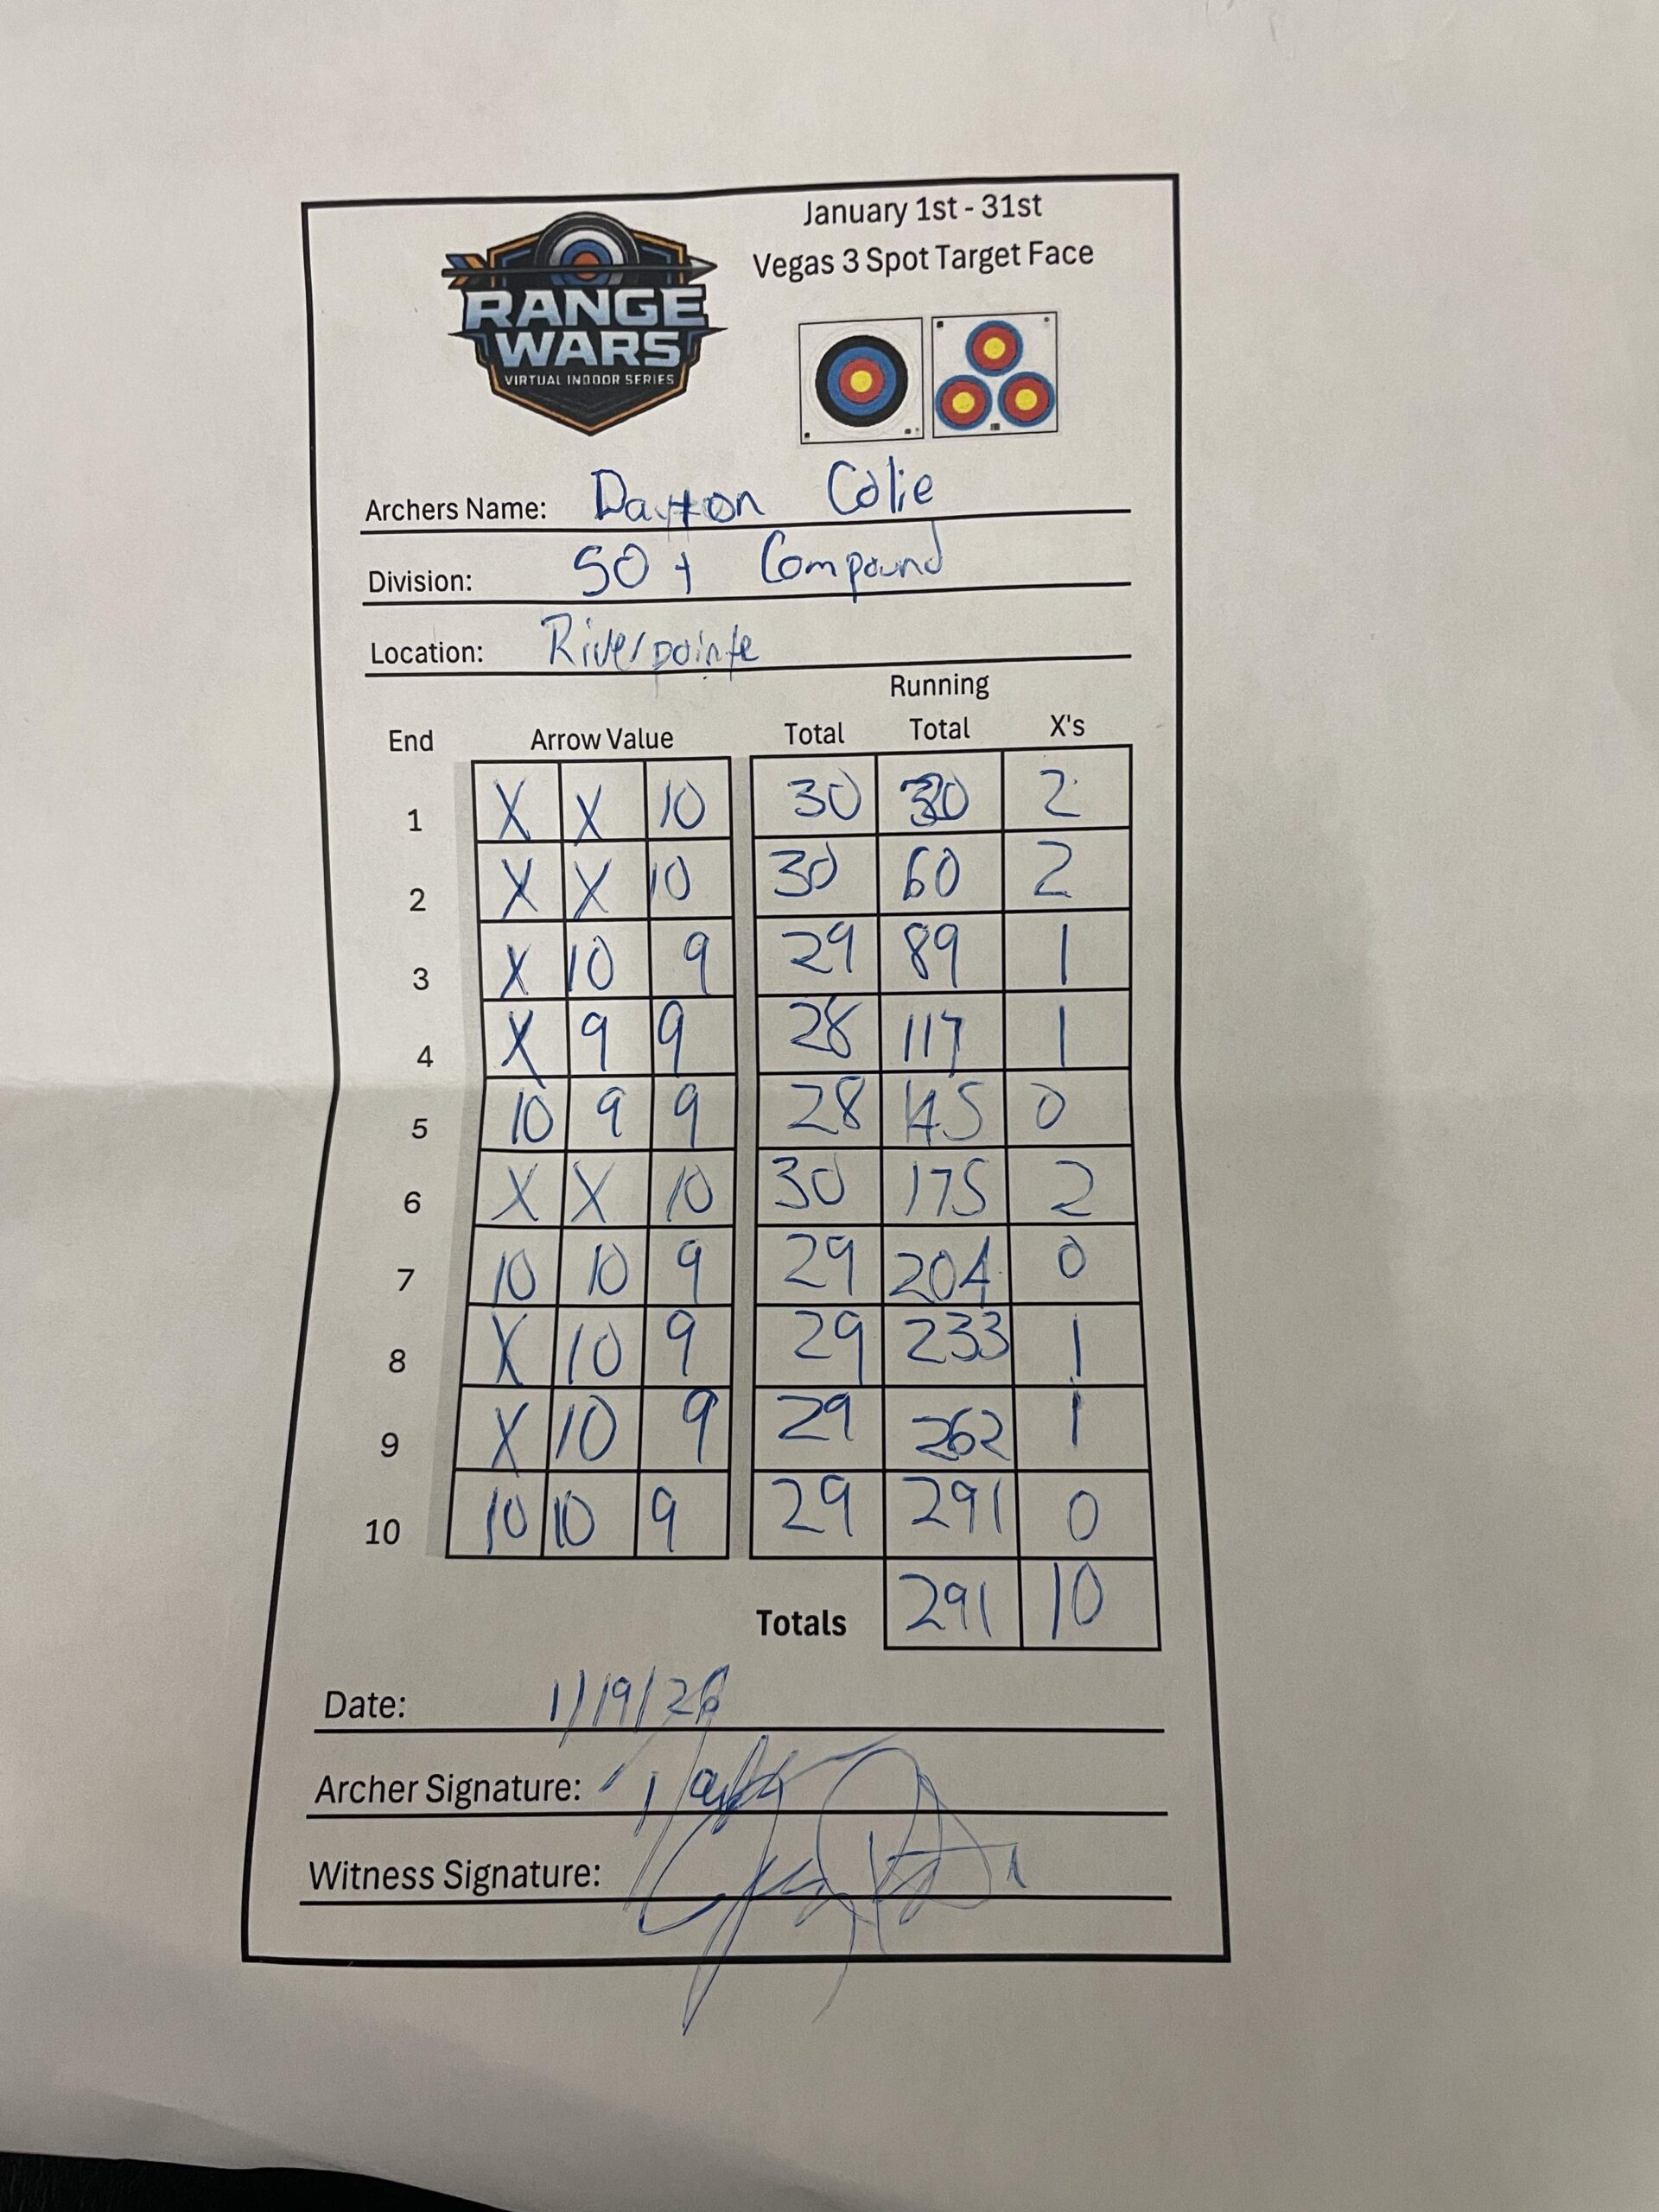 January 1st - 31st
Vegas 3 Spot Target Face
RANGE
WARS
VIRTUAL INDOOR SERIES
Archers Name: Dayton Colie
Division: 50+ Compound
Location: Riverpointe
Running
End Arrow Value Total Total X's
1 X X 10 30 30 2
2 X X 10 30 60 2
3 X 10 9 29 89 1
4 X 9 9 28 117 1
5 10 9 9 28 145 0
6 X X 10 30 175 2
7 10 10 9 29 204 0
8 X 10 9 29 233 1
9 X 10 9 29 262 1
10 10 10 9 29 291 0
Totals 291 10
Date: 1/19/26
Archer Signature:
Witness Signature: